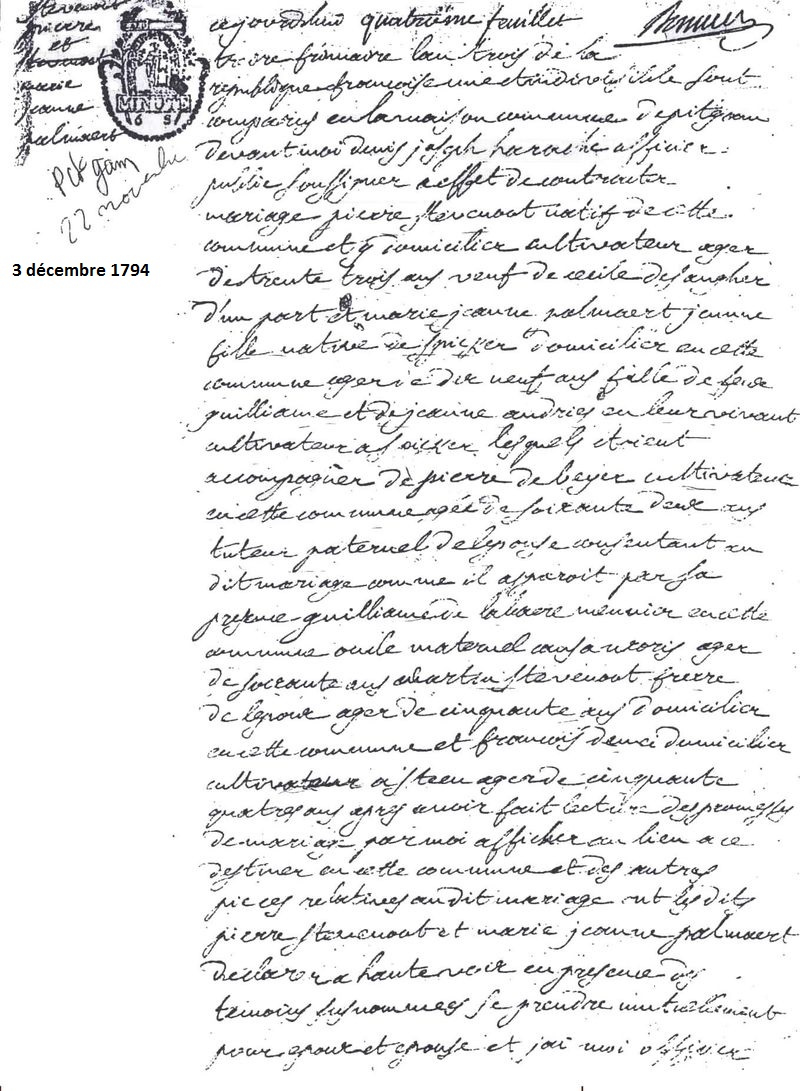 stevenout
pierre
et
marie
jeanne
palmaert
MINUTE
Pitgam
22 novembre
3 décembre 1794
aujourdhui quatrieme feuillet
treze frimaire lan trois de la
republique francoise une et indivisible sont
comparus en la maison commune de pitgam
devant moi denis joseph harache officier
public soussigner a effet de contracter
mariage pierre stevenout natif de cette
commune et y domicilier cultivateur ager
de trente trois ans veuf de cecile
d'un part et marie jeanne palmaert jeunne
fille native de spicker domicilier en cette
commune ager de dix neuf ans fille de feux
guilliaume et de jeanne andries en leur vivant
cultivateur a spicker lesquels etoient
accompagner de pierre de beyer cultivateur
en cette commune agée de soixante deux ans
tuteur paternel de lepouse consentant au
dit mariage comme il apparoit par sa
presence guilliaume de labaere meunier en cette
commune oncle maternel ager
de soixante ans martin stevenout frere
de lepoux ager de cinquante ans domicilier
en cette commune et francois domicilier
cultivateur a steen ager de cinquante
quatres ans apres avoir fait lecture des promesses
de mariage par moi afficher au lieu a ce
destiner en cette commune et des autres
pieces relatives au dit mariage ont les dits
pierre stevenout et marie jeanne palmaert
declarer a haute voix en presence des
temoins susnommes se prendre mutuellement
pour epoux et epouse et jai moi officier